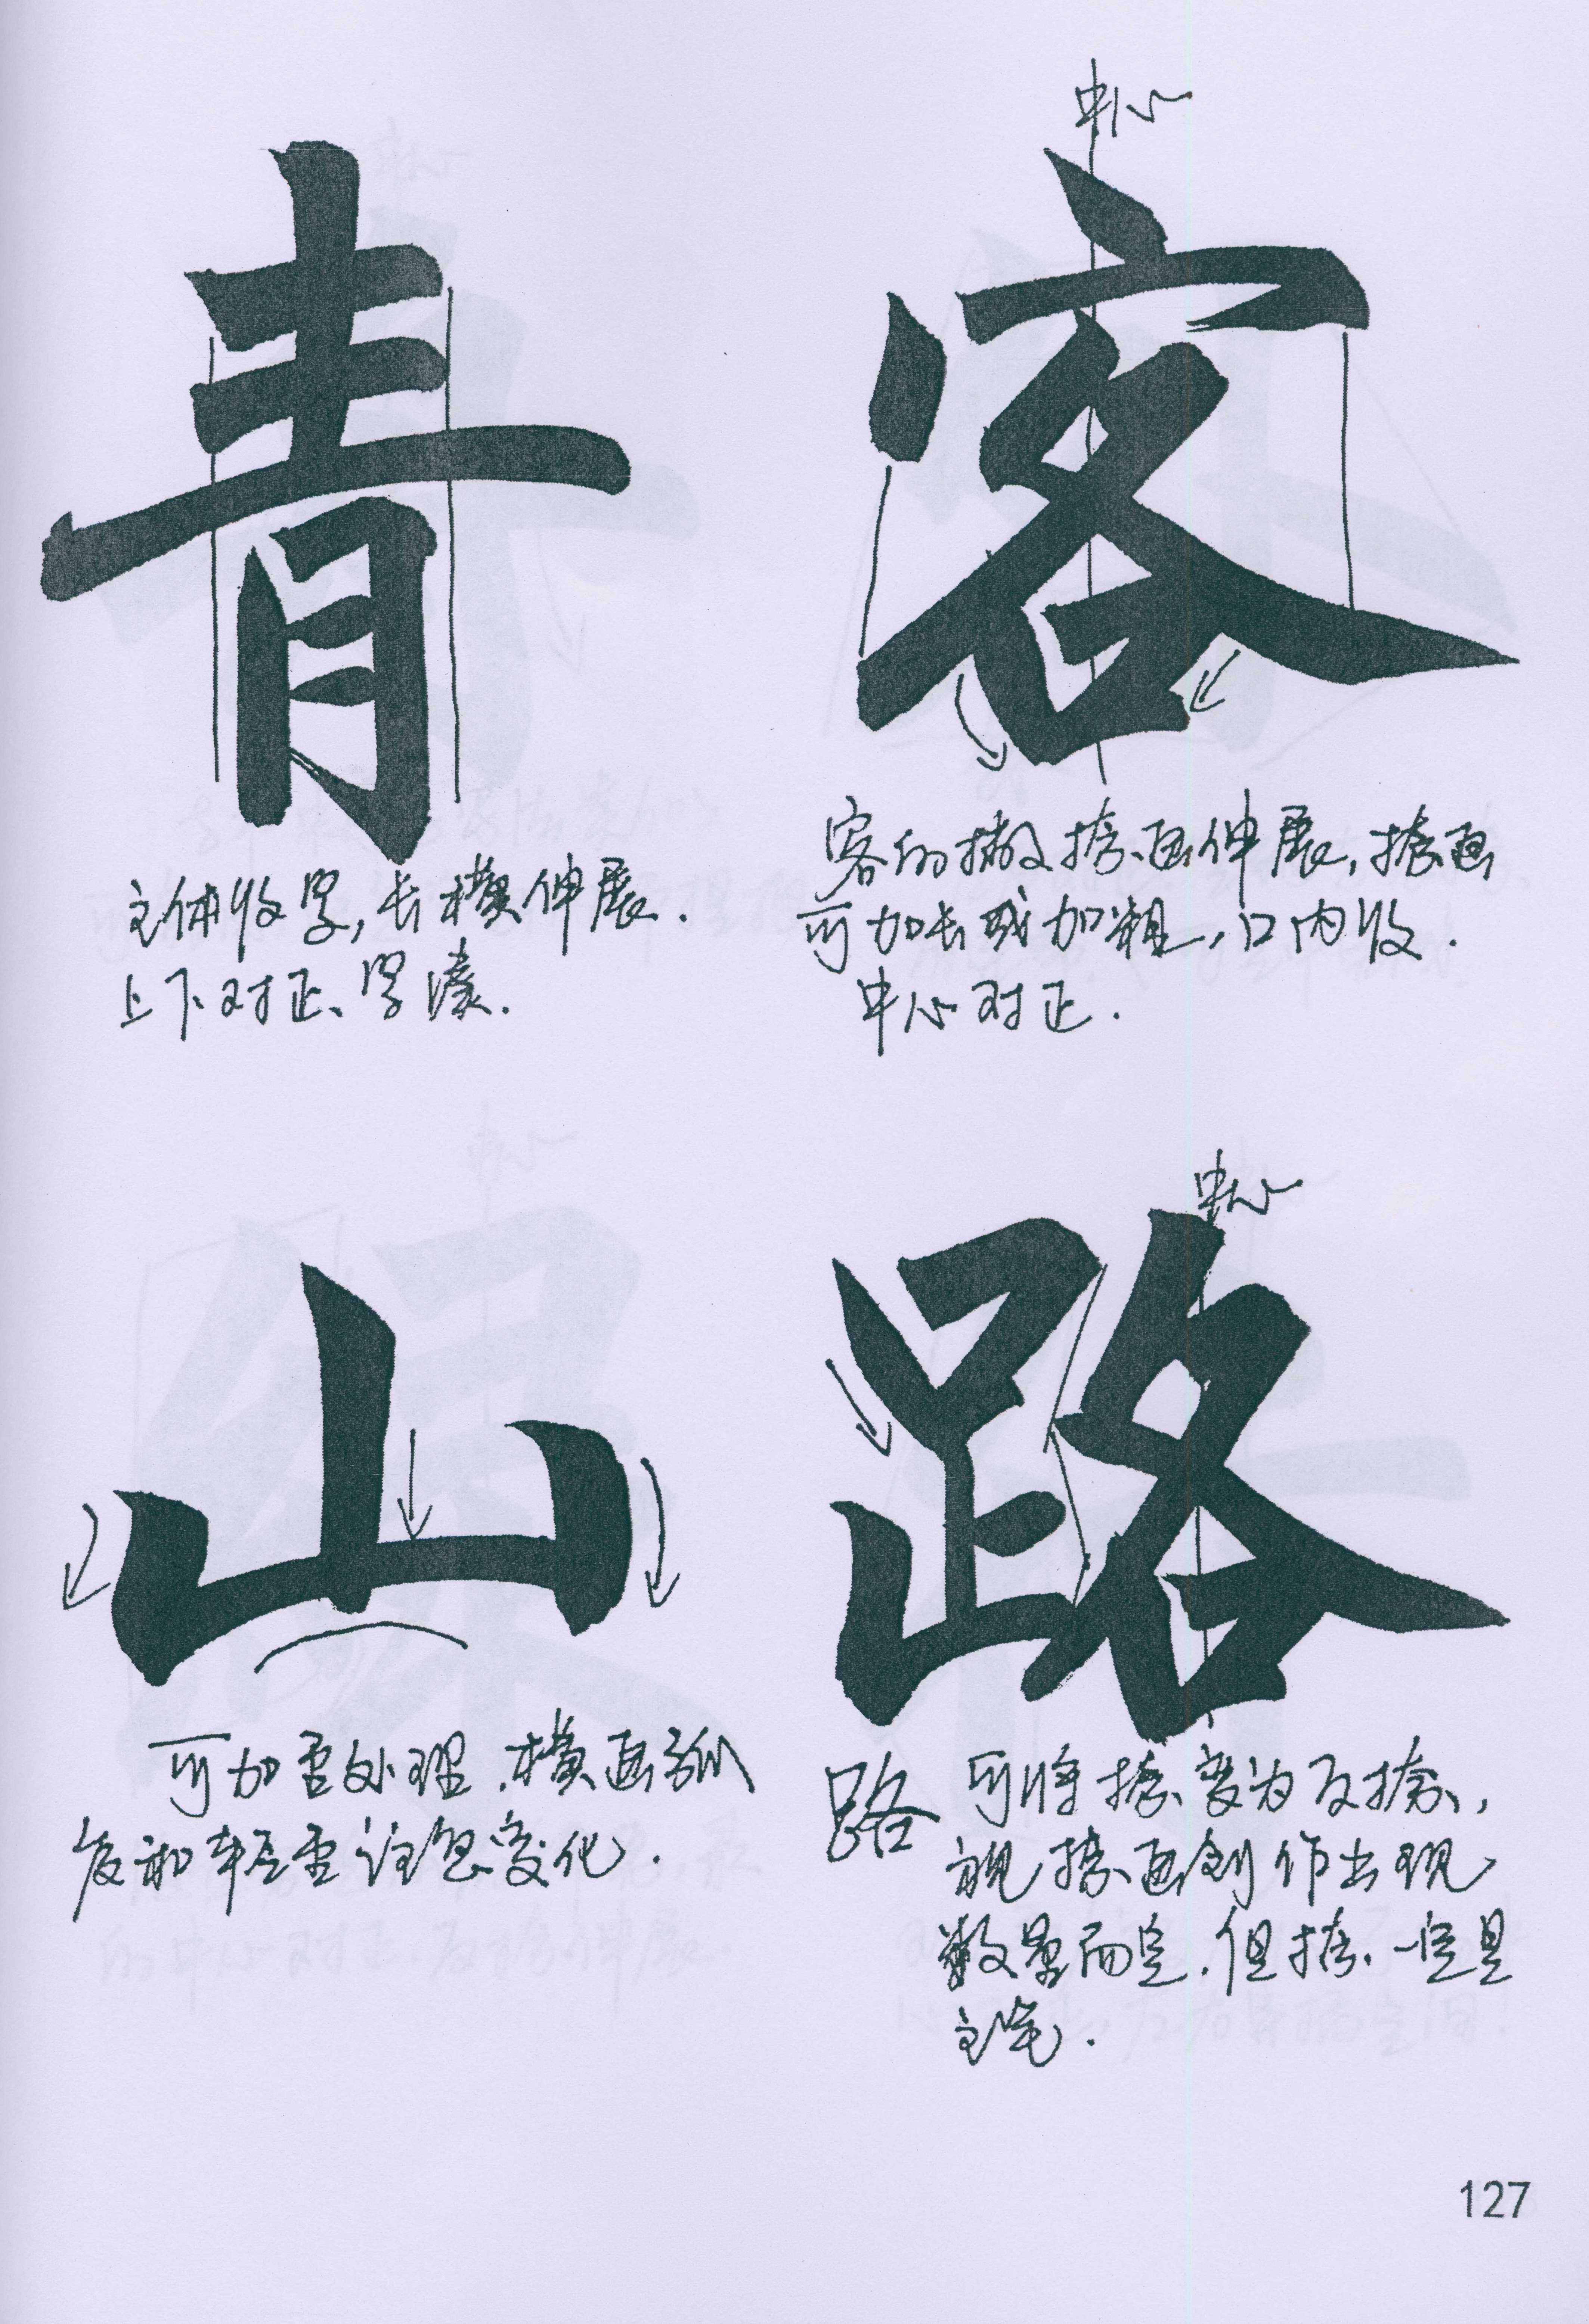 中心
客
客的撇捺画伸展,捺画
可加长或加粗,口内收.
中心对正.
中心
路
路 可将捺变为反捺,
视捺画创作出现
数量而定.但捺一定是
主笔.
青
主体收紧,长横伸展.
上下对正、紧凑.
山
可加重处理.横画弧
度和轻重注意变化.
127